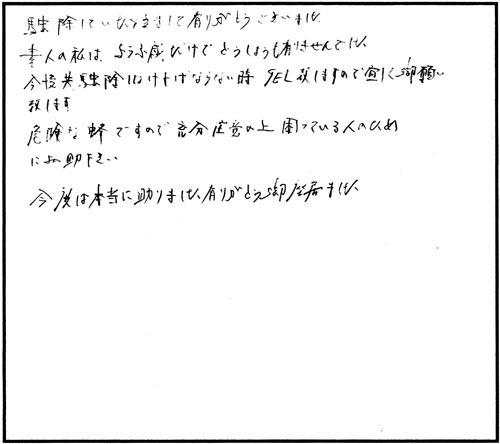 駆除していただきまして有りがとうございました
素人の私は、ようふ感だけでどうしょうも有りませんでした
今後共駆除しなければならない時 TEL致しますので宜しく御願い
致します
危険な蜂ですので充分注意の上 困っている人のため
にお助下さい
今度は本当に助りました、有りがとう御座居ました